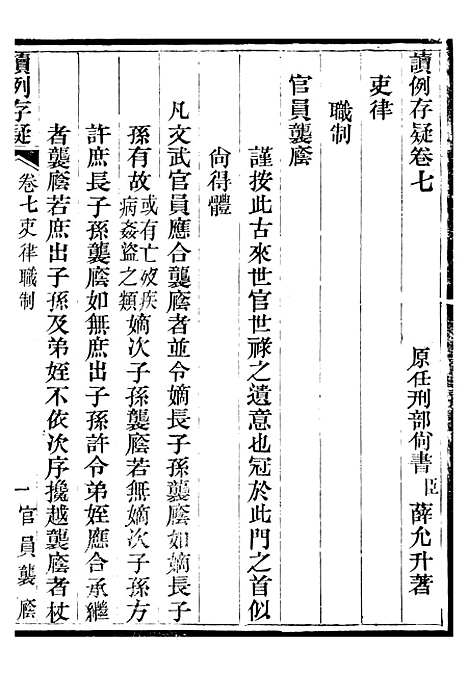 讀例存疑卷七
原任刑部尙書臣薛允升著
吏律
職制
官員襲廕
謹按此古來世官世祿之遺意也冠於此門之首似
尙得體
凡文武官員應合襲廕者並令嫡長子孫襲廕如嫡長子
孫有故或有亡歿疾病姦盜之類嫡次子孫襲廕若無嫡次子孫方
許庶長子孫襲廕如無庶出子孫許令弟姪應合承繼
者襲廕若庶出子孫及弟姪不依次序攙越襲廕者杖
讀例存疑
卷七吏律職制
一
官員襲廕